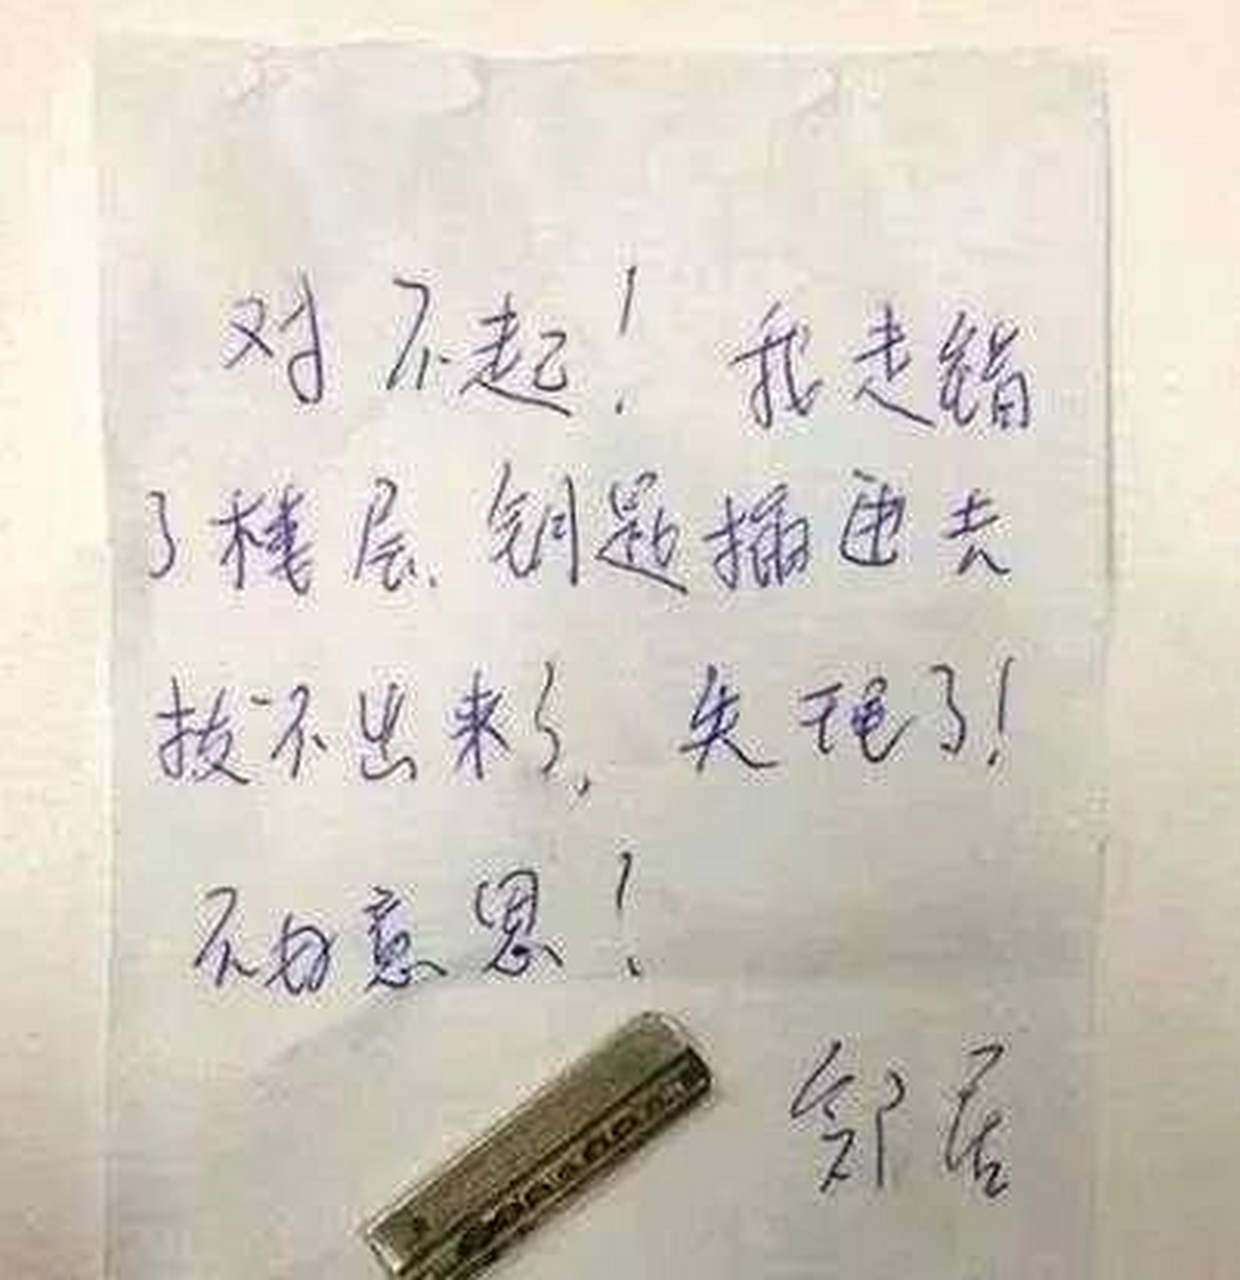 对不起！我走错
了楼层、钥匙插进去
拔不出来了，失现了！
不好意思！
邻居